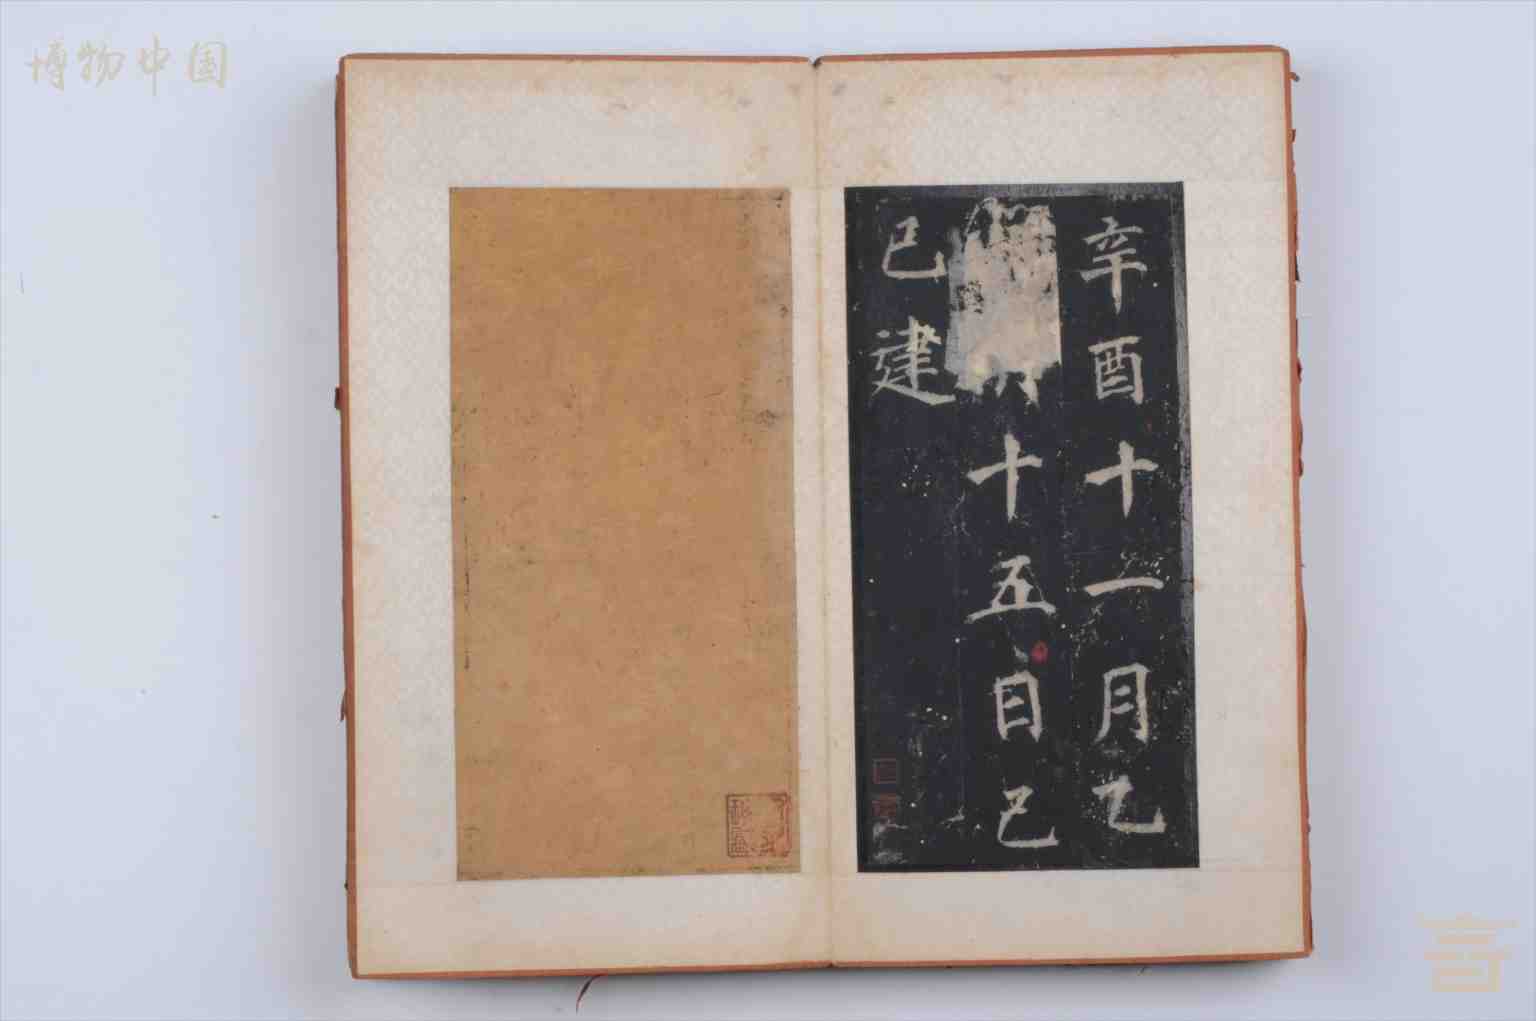 博物中国
辛酉十一月乙
十五日己
巳建